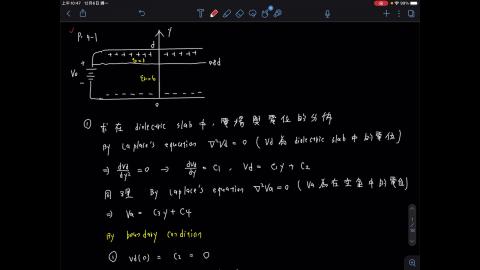 上午10:47 12月6日 週一
99%
P. 4-1
y
d
+ + + + + + + + + + +
εr=1
0.8d
+
V0
εr=6
-
- - - - - - - -
0
① 求在 dielectric slab 中, 電場與電位的分佈
By Laplace's equation ∇²Vd = 0 ( Vd 為 dielectric slab 中的電位)
⇒ d²Vd/dy² = 0 → dVd/dy = C1, Vd = C1y + C2
同理 By Laplace's equation ∇²Va = 0 ( Va 為在空氣中的電位)
⇒ Va = C3y + C4
By boundary condition
① Vd(0) = C2 = 0